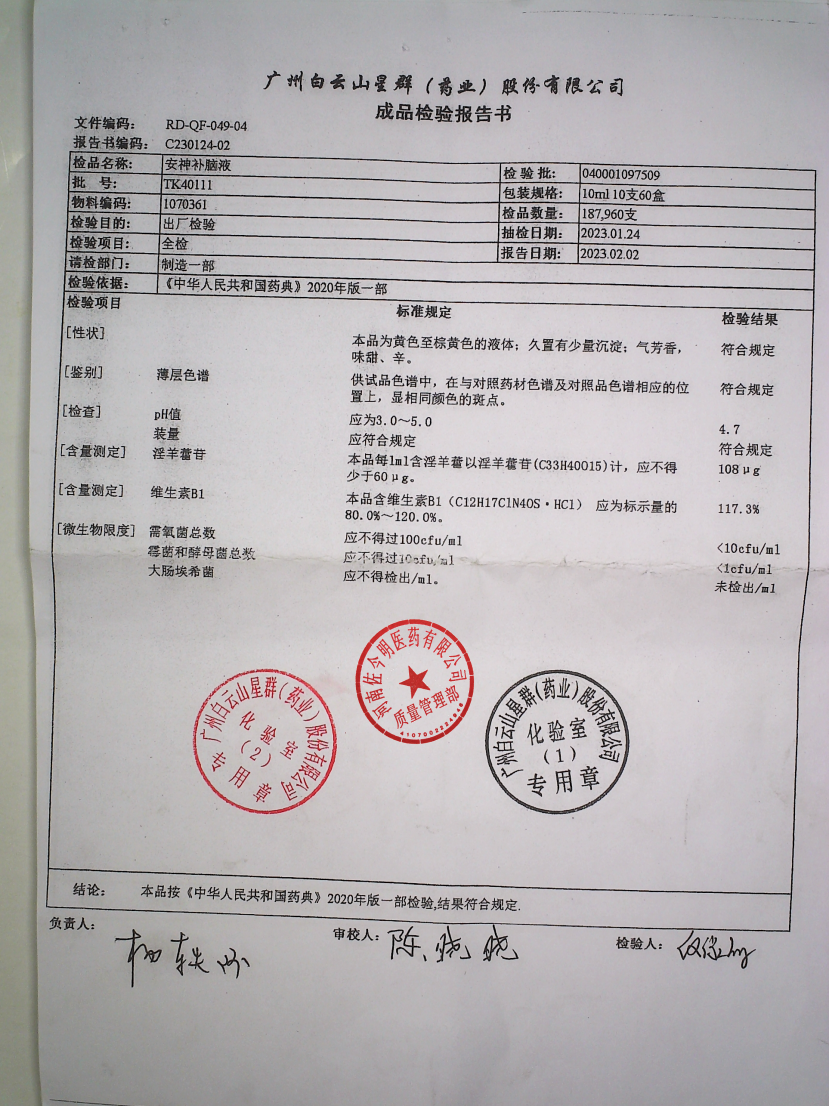 广州白云山星群（药业）股份有限公司
成品检验报告书
文件编码： RD-QF-049-04
报告书编码： C230124-02
检品名称： 安神补脑液 检 验 批： 040001097509
批 号： TK40111 包装规格： 10ml 10支60盒
物料编码： 1070361 检品数量： 187,960支
检验目的： 出厂检验 抽检日期： 2023.01.24
检验项目： 全检 报告日期： 2023.02.02
请检部门： 制造一部
检验依据： 《中华人民共和国药典》2020年版一部
检验项目 标准规定 检验结果
[性状] 本品为黄色至棕黄色的液体；久置有少量沉淀；气芳香， 符合规定
味甜、辛。
[鉴别] 薄层色谱 供试品色谱中，在与对照药材色谱及对照品色谱相应的位 符合规定
置上，显相同颜色的斑点。
[检查] pH值 应为3.0～5.0 4.7
装量 应符合规定 符合规定
[含量测定] 淫羊藿苷 本品每1ml含淫羊藿以淫羊藿苷(C33H40O15)计，应不得 108μg
少于60μg。
[含量测定] 维生素B1 本品含维生素B1（C12H17ClN4OS·HCl） 应为标示量的 117.3%
80.0%～120.0%。
[微生物限度] 需氧菌总数 应不得过100cfu/ml <10cfu/ml
霉菌和酵母菌总数 应不得过10cfu/ml <1cfu/ml
大肠埃希菌 应不得检出/ml。 未检出/ml
河南佐今明医药有限公司
质量管理部
4107002224948
广州白云山星群(药业)股份有限公司
化验室
(2)
专用章
广州白云山星群(药业)股份有限公司
化验室
(1)
专用章
结论： 本品按《中华人民共和国药典》2020年版一部检验,结果符合规定.
负责人： 审校人：陈晓晓 检验人：